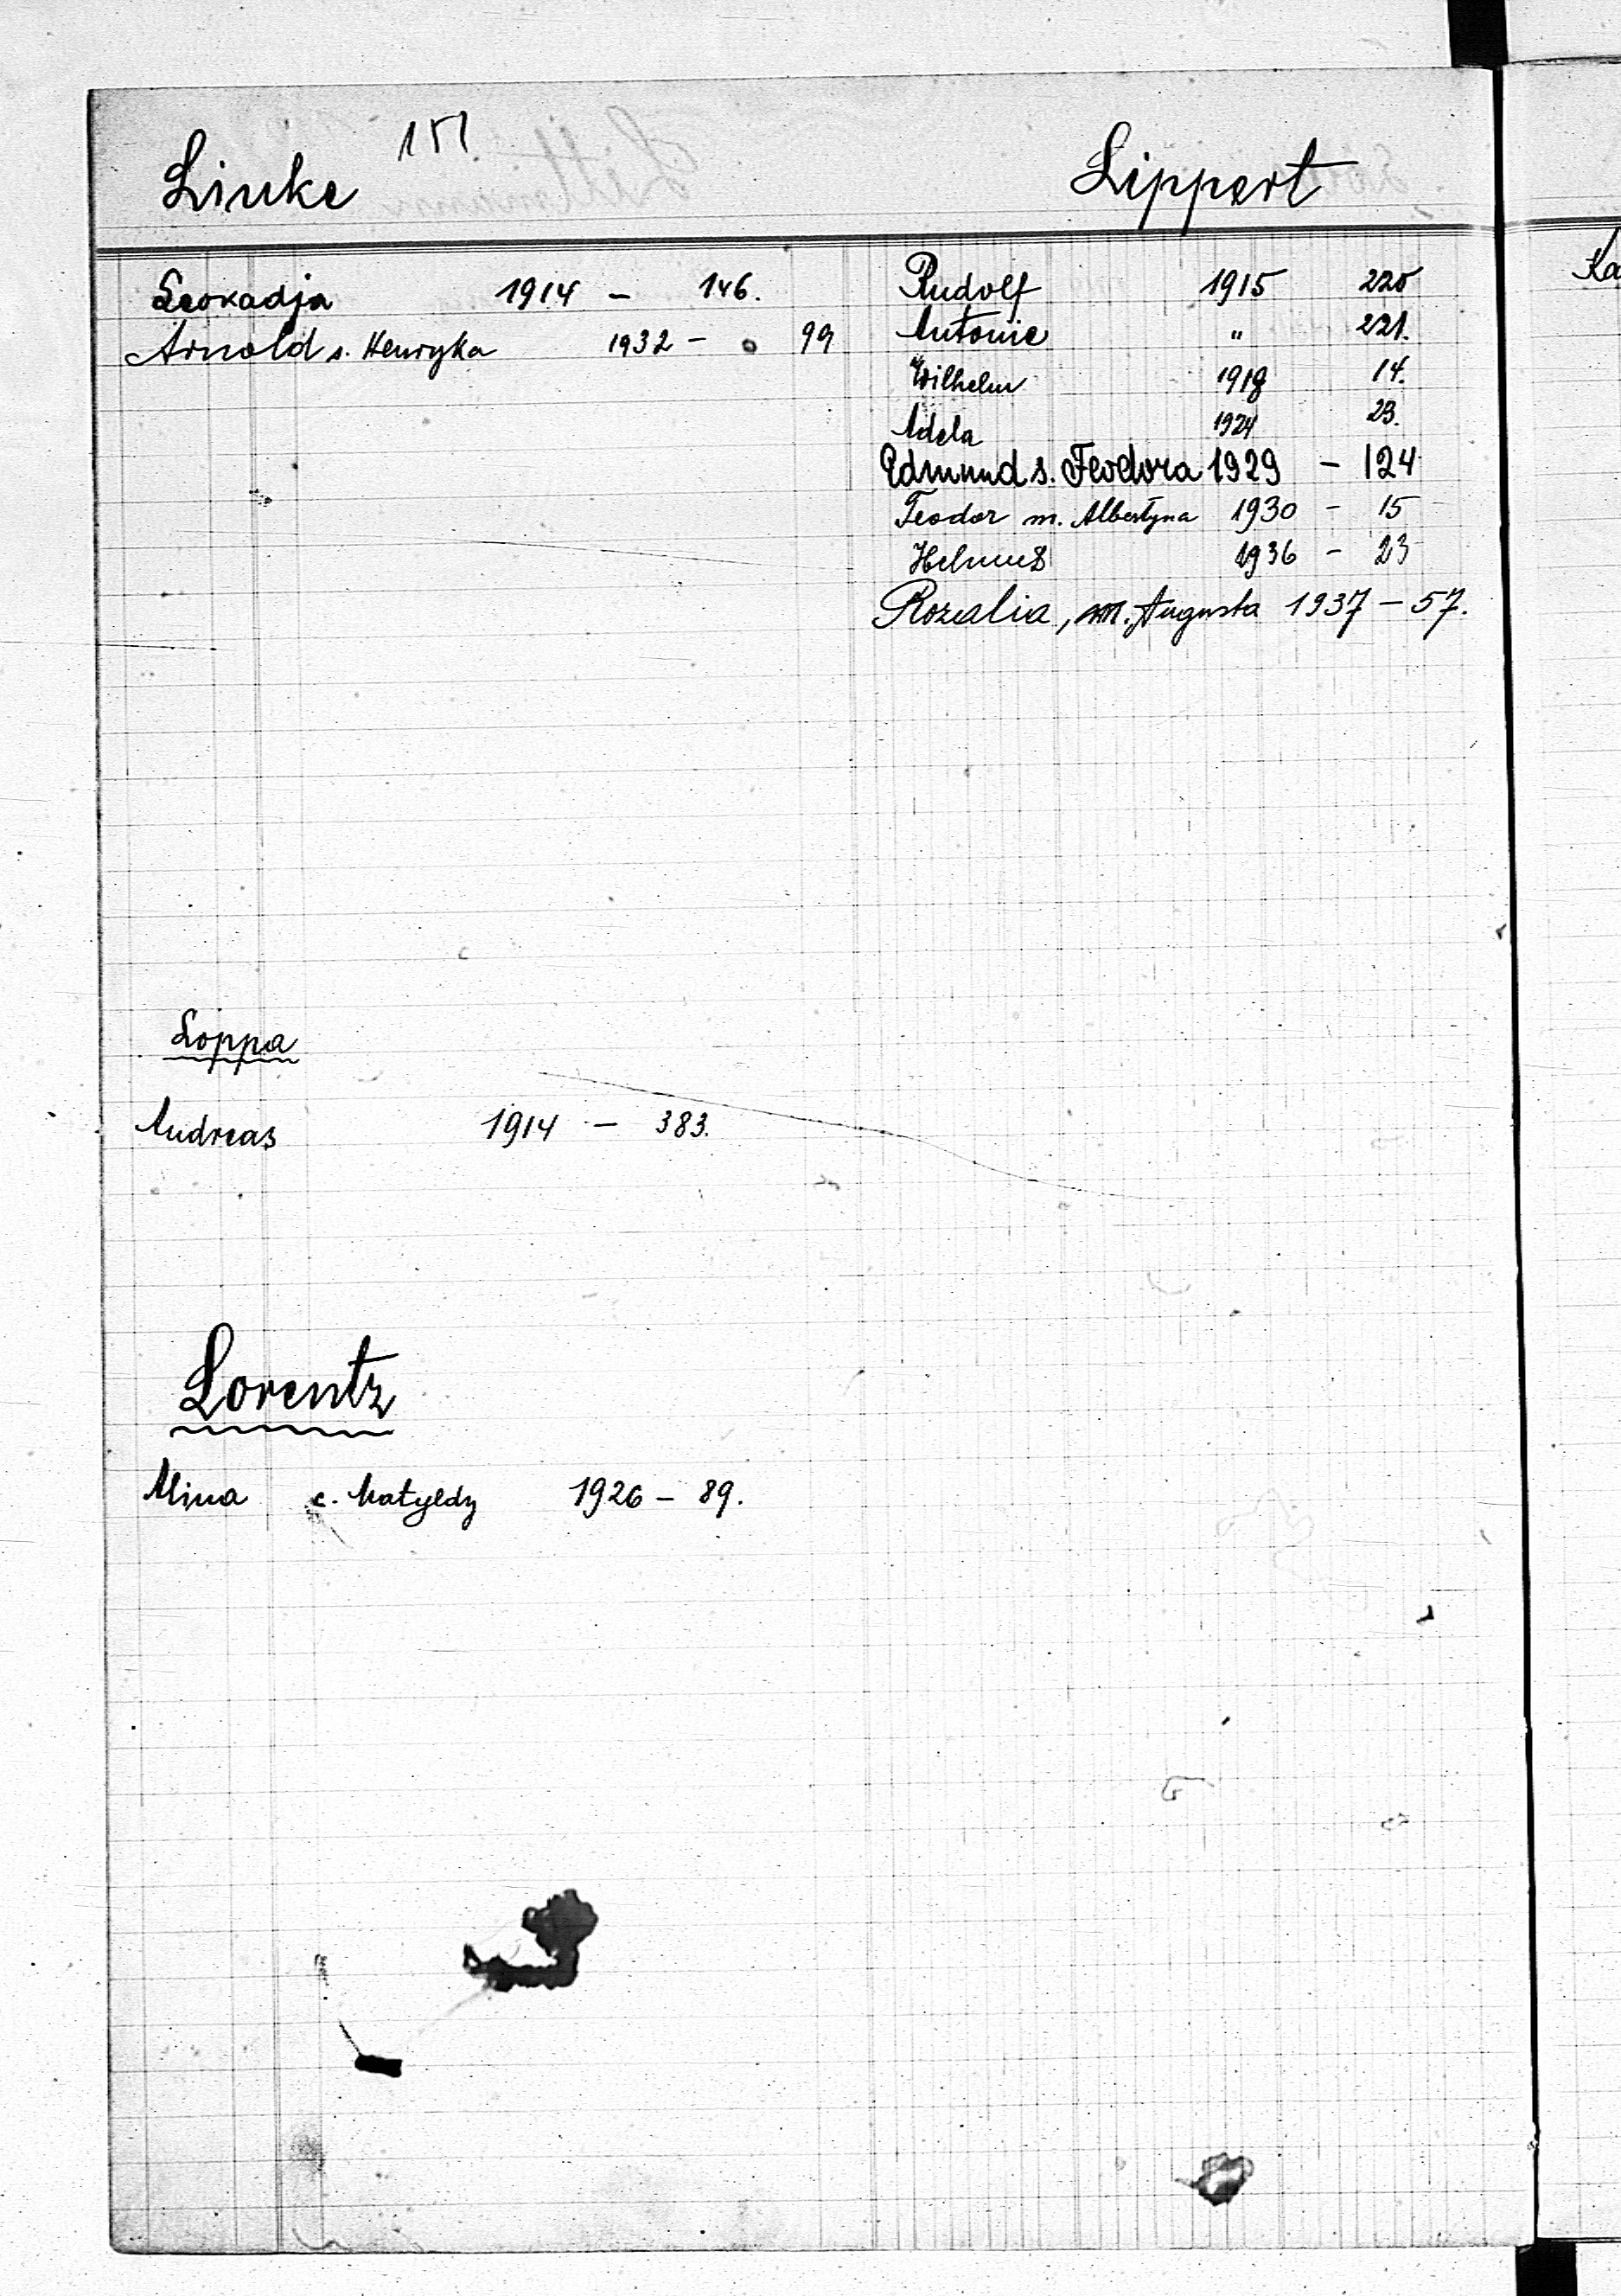 151
Linke
Leokadja 1914 – 146.
Arnold s. Henryka 1932 – 99
Loppa
Andreas 1914 – 383.
Lorentz
Mina c. Matyldy 1926 – 89.
Lippert
Rudolf 1915 220
Antonie " 221.
Wilhelm 1918 14.
Adela 1924 23.
Edmund s. Feodora 1929 – 124
Teodor m. Albertyna 1930 – 15
Helmut 1936 – 23
Rozalia, m. Augusta 1937 – 57.
Ka